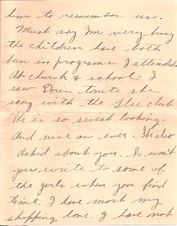 how to remember us.
Must say I'm very busy
the children have both
been in programs I attended
At church & school. I
saw Doris tonite she
sang with the Glee club
He is so sweet looking.
And nice as ever. She also
asked about you. So won't
you write to some of
the girls when you find
time. I have most my
shopping done. I have not